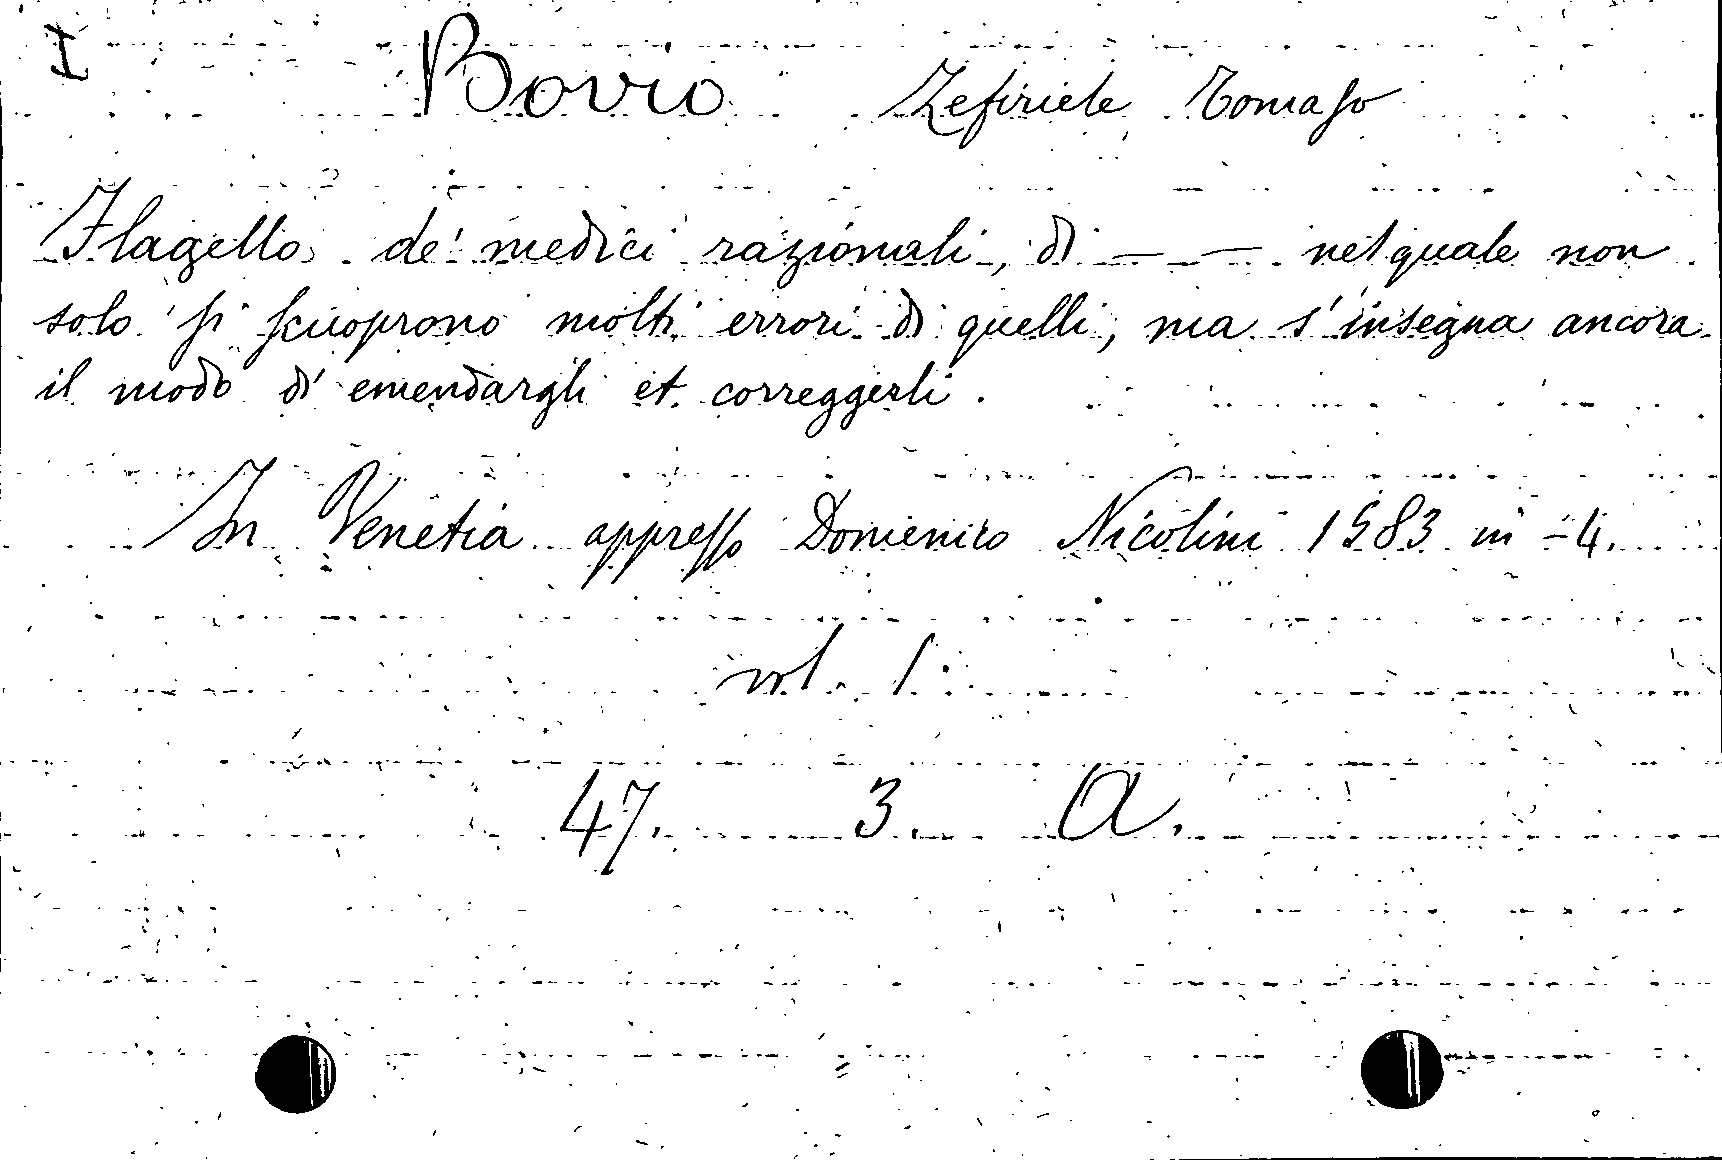 I Bovio Zefiriele Tomaso
Flagello de' medici razionali, di — — nel quale non
solo si scuoprono molti errori di quelli, ma s'insegna ancora
il modo di emendargli et correggerli.
In Venetia appresso Domenico Nicolini 1583 in-4.
vol. 1.
47. 3. A.